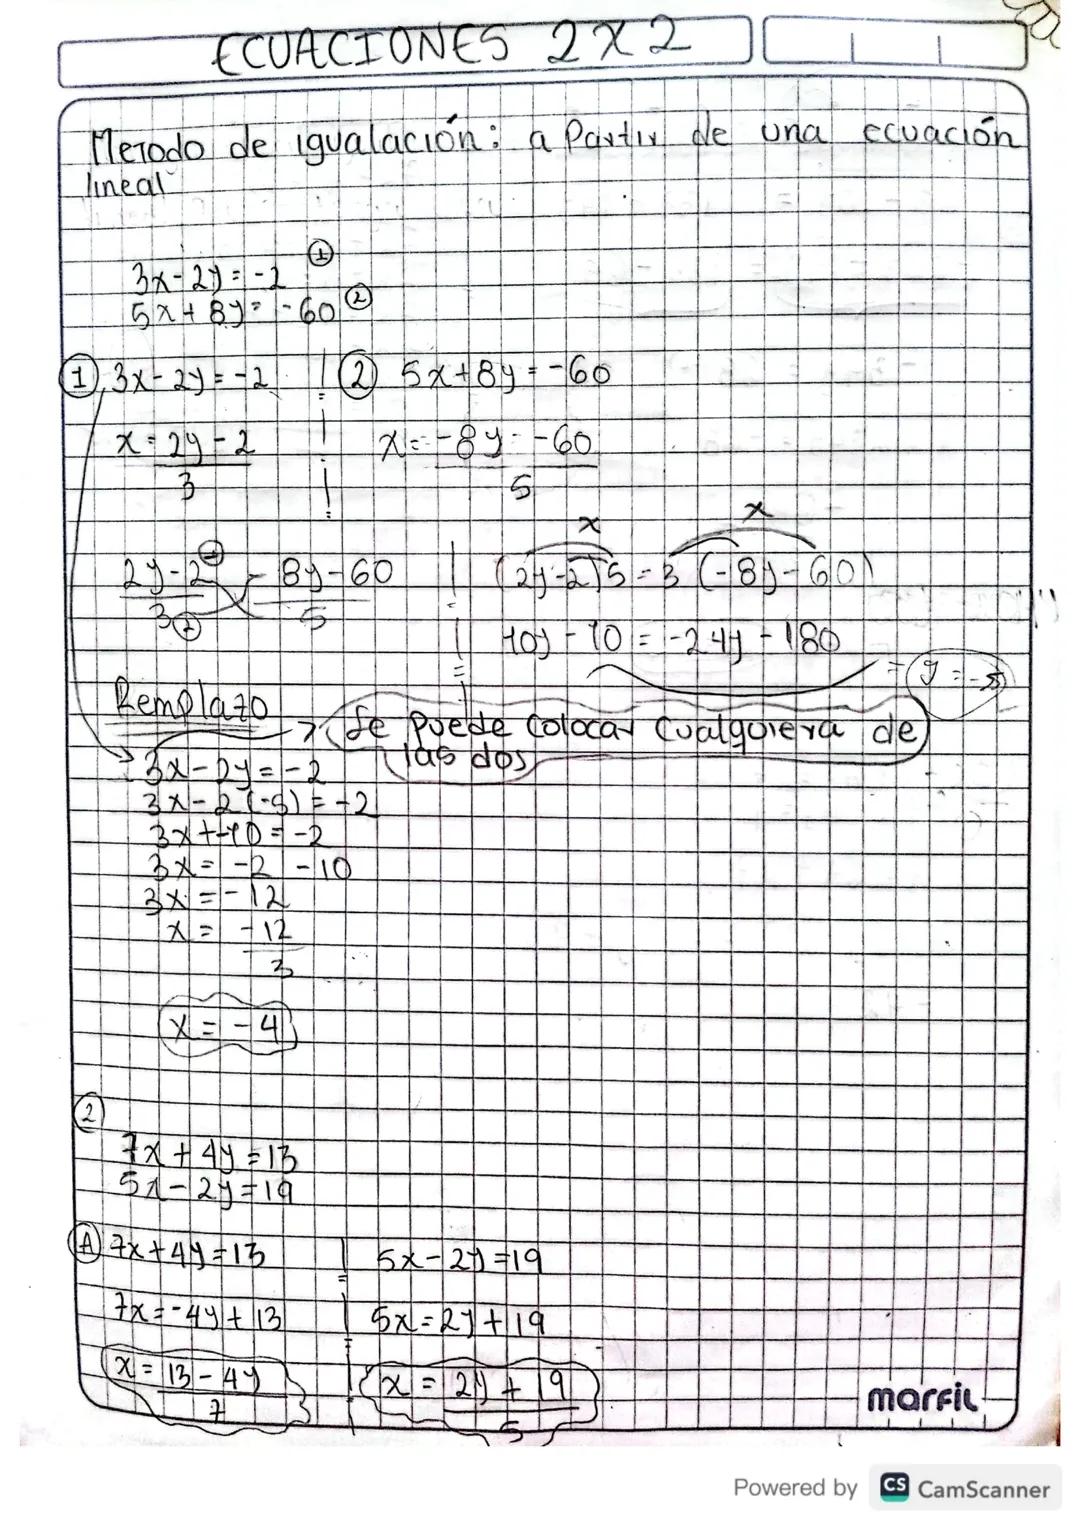 ECUACIONES 2X2
Metodo de igualación: a Partir de una ecuación
lineal
3x-2y=-2 ①
5x+8y=-60 ②
① 3x-2y=-2
x=2y-2
3
② 5x+8y=-60
x=-8y--60
5
2y-2 ① -8y-60
3 ② 5
x x
(2y-2)5=3(-8y-60)
10y-10=-24y-180
= y=-5
Remplazo
Se puede colocar cualquiera de
las dos
3x-2y=-2
3x-2(-5)=-2
3x+10=-2
3x=-2-10
3x=-12
x=-12
3
x=-4
②
7x+4y=13
5x-2y=19
Ⓐ 7x+4y=13
7x=-4y+13
x=13-4y
7
5x-2y=19
5x=2y+19
x=2y+19
5
marfil
Powered by CS CamScanner